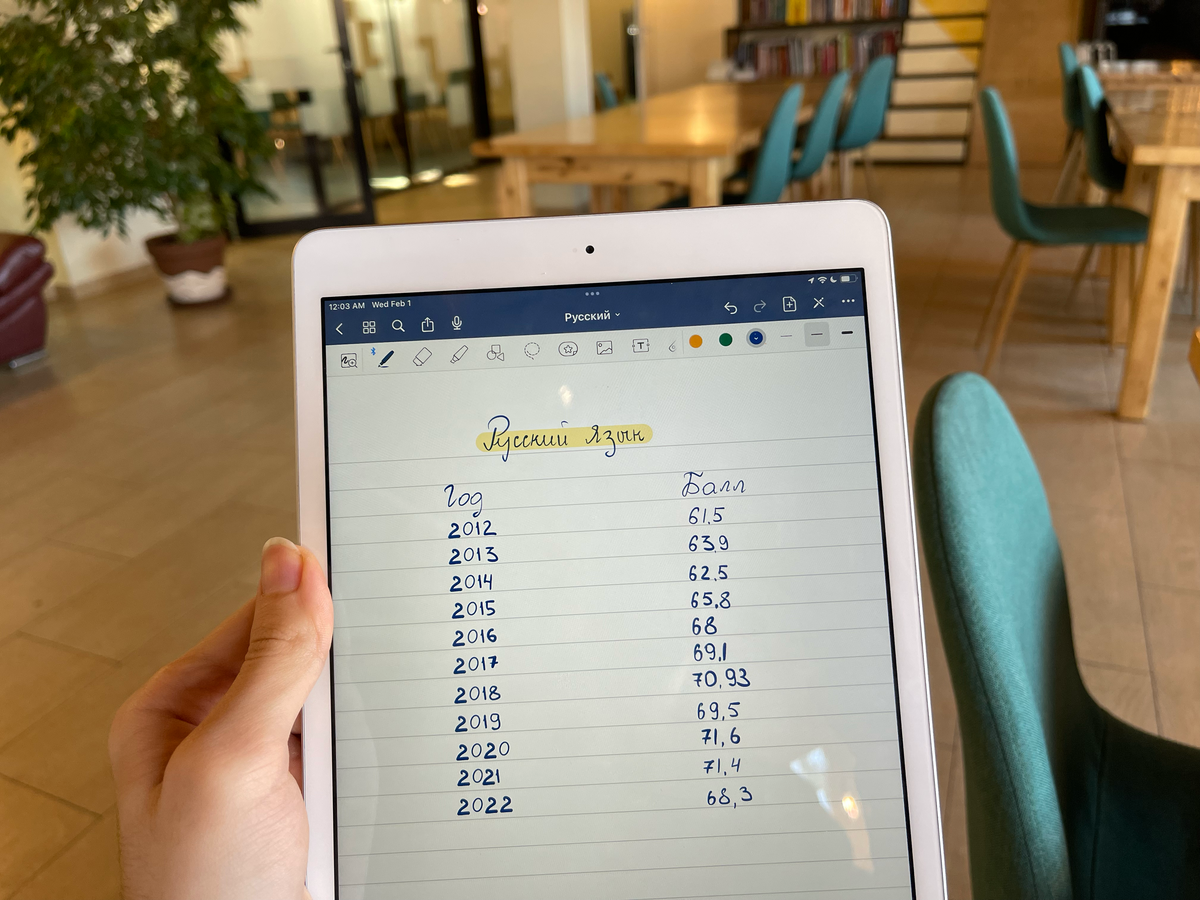 12:03 AM Wed Feb 1
Русский
Русский язык
Год Балл
2012 61,5
2013 63,9
2014 62,5
2015 65,8
2016 68
2017 69,1
2018 70,93
2019 69,5
2020 71,6
2021 71,4
2022 68,3